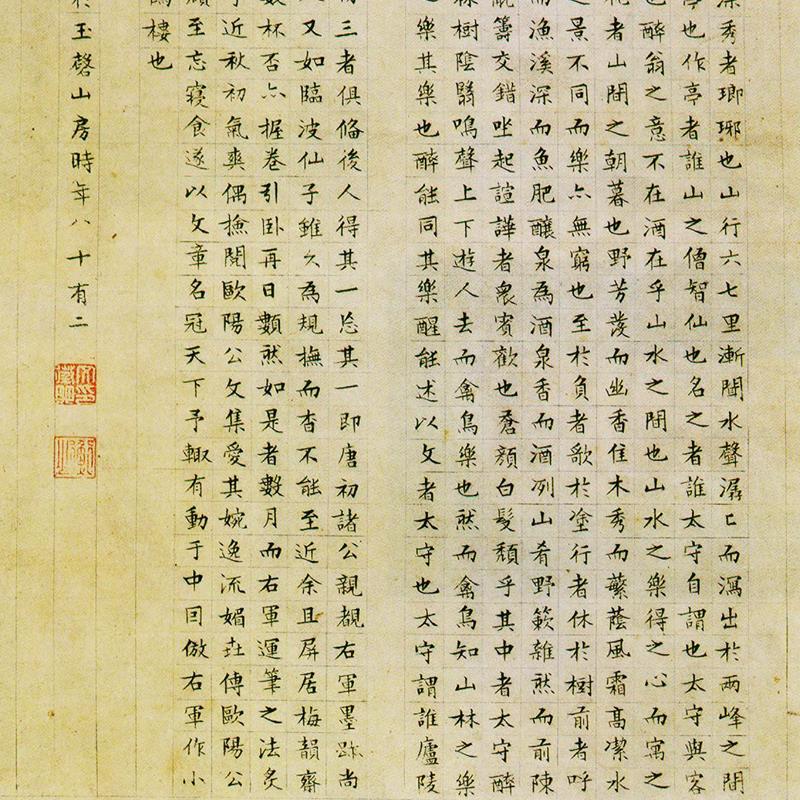 深秀者瑯琊也山行六七里漸聞水聲潺〻而瀉出於兩峰之間
亭也作亭者誰山之僧智仙也名之者誰太守自謂也太守與客
也醉翁之意不在酒在乎山水之間也山水之樂得之心而寓之
者山間之朝暮也野芳發而幽香佳木秀而蘩蔭風霜高潔水
之景不同而樂亦無窮也至於負者歌於塗行者休於樹前者呼
而漁溪深而魚肥釀泉為酒泉香而酒冽山肴野蔌雜然而前陳
觥籌交錯坐起諠譁者衆賓歡也蒼顏白髮頹乎其中者太守醉
林樹陰翳鳴聲上下遊人去而禽鳥樂也然而禽鳥知山林之樂
之樂其樂也醉能同其樂醒能述以文者太守也太守謂誰廬陵
三者俱備後人得其一忘其一即唐初諸公親覩右軍墨跡尚
又如臨波仙子雖久為規撫而杳不能至近余且屏居梅韻齋
數杯否亦握卷引卧再日數然如是者數月而右軍運筆之法炙
近秋初氣爽偶撿閱歐陽公文集愛其婉逸流媚傳歐陽公
至忘寢食遂以文章名冠天下予輒有動于中因倣右軍作小
樓也
於玉磬山房時年八十有二